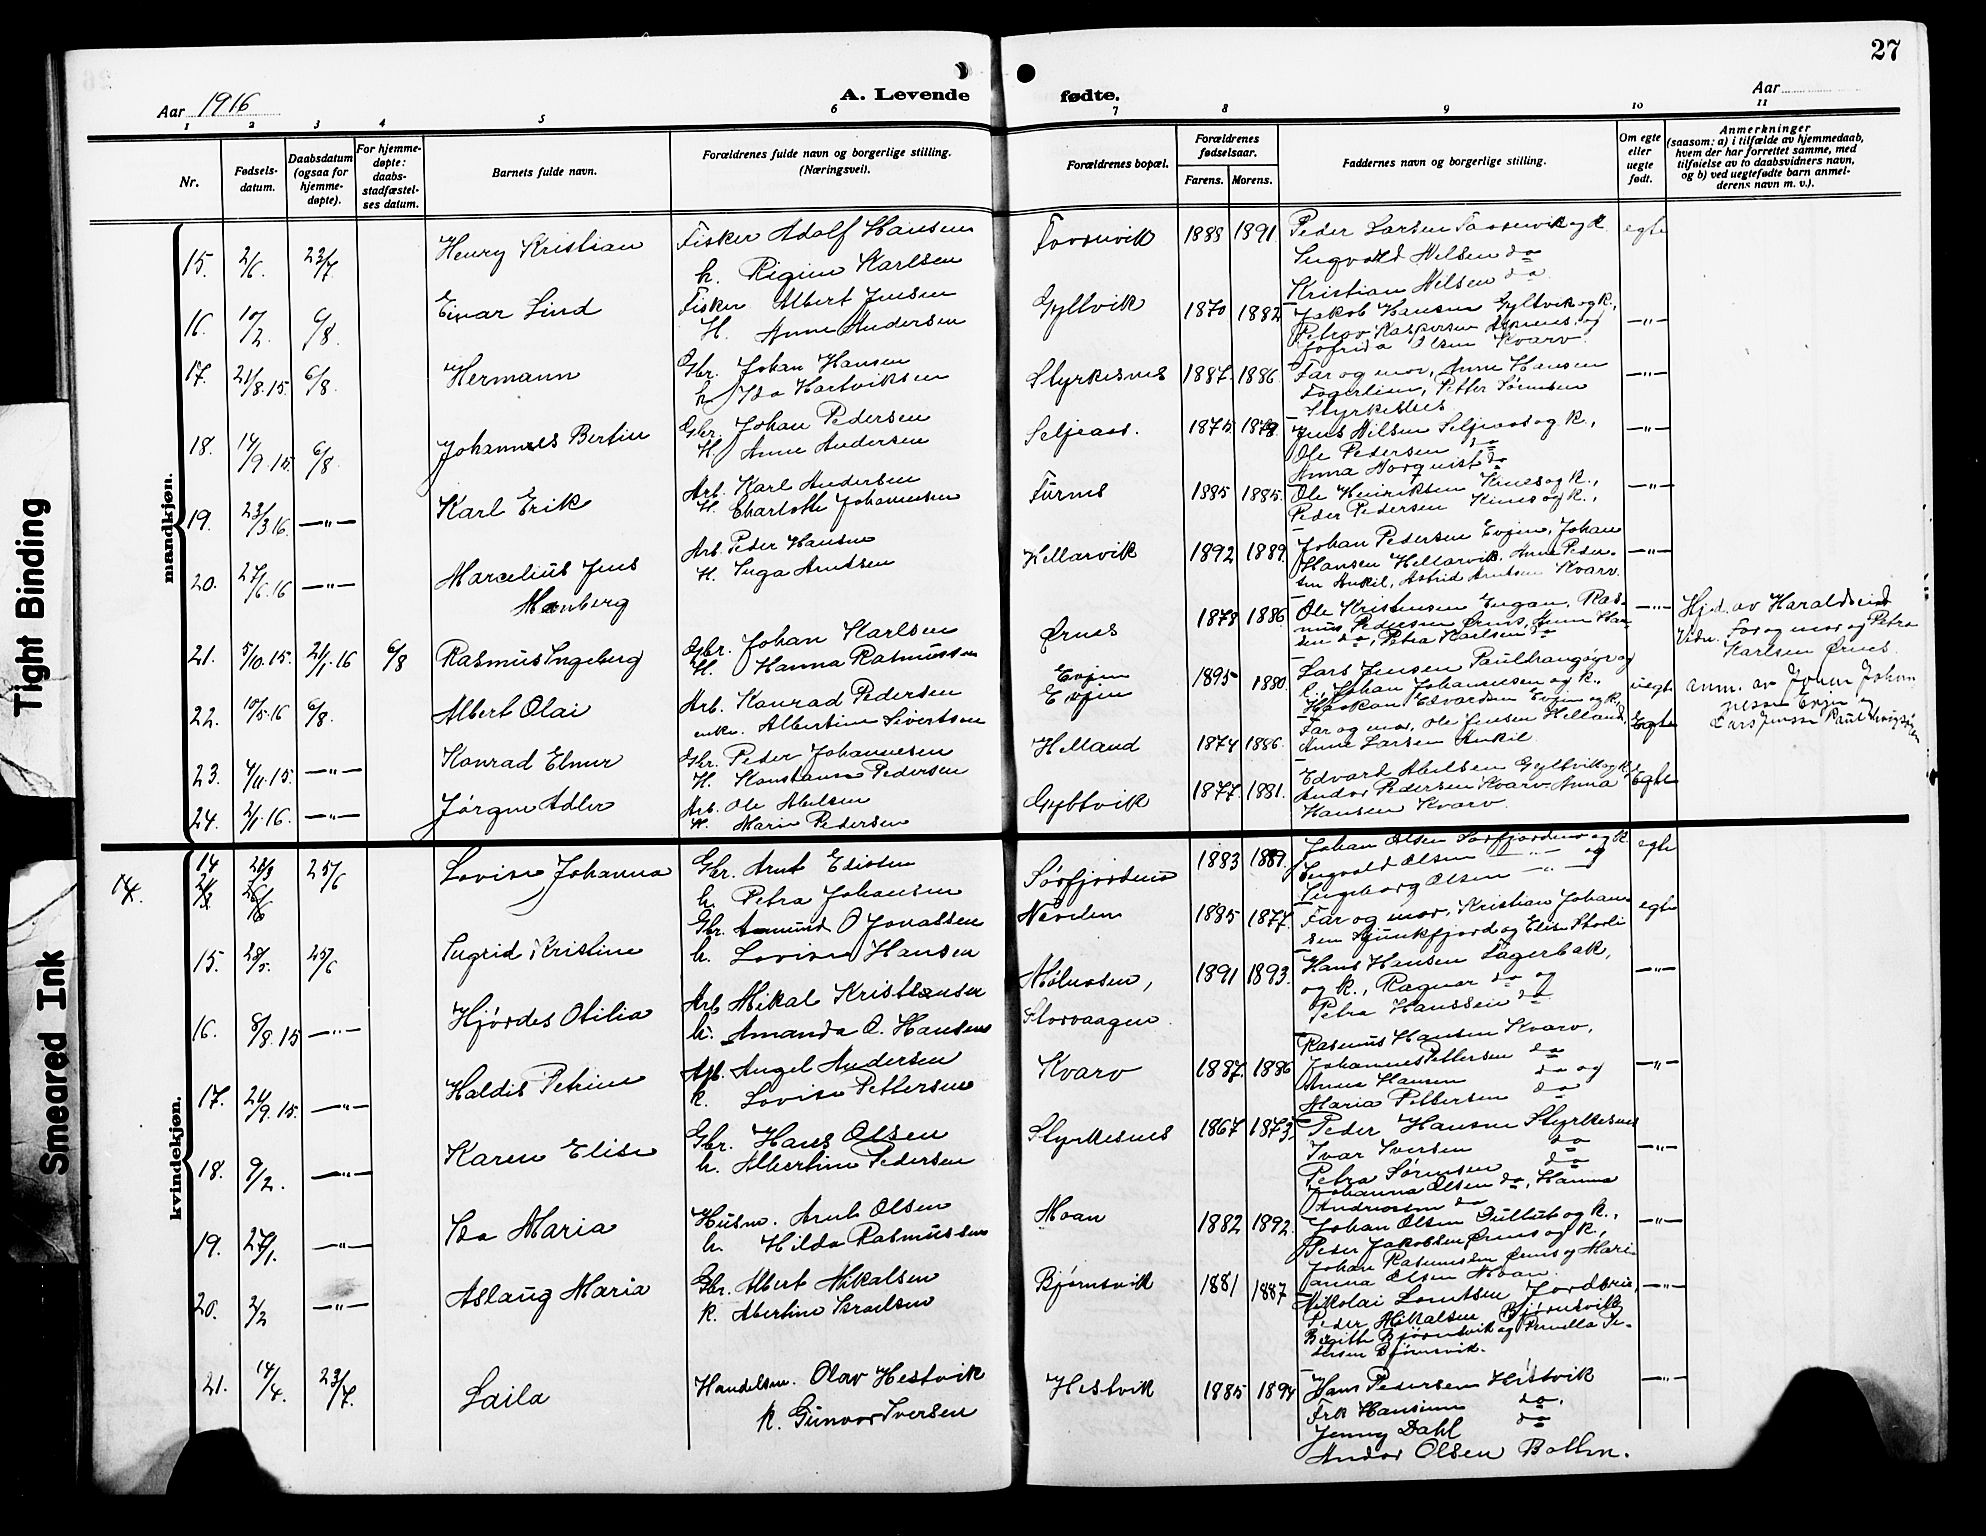 27
Aar 1916
A. Levende fødte.
Aar
1 2 3 4 5 6 7 8 9 10 11
Nr.
Fødsels-
datum.
Daabsdatum
(ogsaa for
hjemme-
døpte).
For hjemme-
døpte:
daabs-
stadfæstel-
ses datum.
Barnets fulde navn.
Forældrenes fulde navn og borgerlige stilling.
(Næringsvei).
Forældrenes bopæl.
Forældrenes
fødselsaar.
Farens. Morens.
Faddernes navn og borgerlige stilling.
Om egte
eller
uegte
født.
Anmerkninger
(saasom: a) i tilfælde av hjemmedaab,
hvem der har forrettet samme, med
tilføielse av to daabsvidners navn,
og b) ved uegtefødte barn anmel-
derens navn m. v.).
mandkjøn.
15. 2/6. 23/7 Henry Kristian
Fisker Adolf Hansen
h. Regine Karlsen
1891
Peder Larsen
Ingvald Nilsen do
Kristian Nilsen do
egte
16. 10/2. 6/8. Einar Lind
Fisker Albert Jensen
H. Anne Andersen
Gyltvik 1870 1882
Jakob Hansen Gyltvik og k.,
Petrov. Kaspersen og
Olsen Kvarv.
—"—
17. 21/8.15. 6/8. Hermann
Gbr. Johan Hansen
h. Ida Hartviksen
Styrkesnes 1887. 1886.
Far og mor, Anne Hansen
Fagerlien, Petter Sørensen
Styrkesnes
—"—
18. 14/9.15. 6/8. Johannes Bertin
Gbr. Johan Pedersen
H. Anne Andersen
Seljeaas. 1875.
Jens Nilsen Seljeaas og k.,
Ole Pedersen do
Anna Norquist do
—"—
19. 23/3.16. —"— Karl Erik
Arb. Karl Andersen
H. Charlotte Johannesen
Furnes 1885 1885.
Ole Henriksen Kines og k.,
Peder Pedersen Kines og k.,
—"—
20. 27/6.16 —"— Marcelius Jens
Monberg
Arb. Peder Hansen
H. Inga Arntsen
Hellarvik 1892 1889.
Johan Pedersen Evjen, Johan
Hansen Hellarvik, Anne Peder-
sen Ankil, Astrid Arntsen Kvarv.
—"—
21. 5/10.15. 21/1.16 6/8 Rasmus Ingeberg
Gbr. Johan Karlsen
H. Hanna Rasmussen
Ørnes 1879 1886.
Ole Kristensen Engan, Ras-
mus Pedersen Ørnes, Anne Han-
sen do, Petra Karlsen do
—"—
Hjd. av Haraldseid
Vidn. Far og mor og Petra
Karlsen Ørnes.
22. 10/5.16 6/8. Albert Olai
Arb. Konrad Pedersen
enke. Albertine Sivertsen
Evjen
Evjen
1895 1880.
Lars Jensen Paulhaugsgr og
k., Johan Johannesen og k.,
Haakon Edvardsen Evjen og k.,
uegte
anm. av Johan Johan
nesen Evjen og
Lars Jensen
23. 7/11.15. —"— Konrad Elmer
Gbr. Peder Johannesen
H. Konstanse Pedersen
Helland 1874 1886.
Far og mor, Ole Jensen Helland,
Anne Larsen Ankil.
Egte
24. 2/1.16. —"— Jørgen Adler
Arb. Ole Abelsen
k. Marie Pedersen
Gyltvik 1877. 1881.
Edvard Abelsen Gyltvik og k.
Andor Pedersen Kvarv. Anna
Hansen Kvarv.
Egte
kvindekjøn.
14. 14 25/6 Lovise Johanna
Gbr. Arnt Elissen
h. Petra Johansen
Sørfjordmo 1883 1889.
Johan Olsen Sørfjordmo og k.
Ingvald Olsen —"— og
Ingeborg Olsen —"—
egte
15. 28/5. 25/6 Ingrid Kristine
Gbr. Amund O Jonassen
h. Lovise Hansen
Nevelen 1885 1877.
Far og mor, Kristian Johan-
sen Djunkfjord og Elise Storli
egte
16. 8/8.15 —"— Hjørdes Otilia
Arb. Mikal Kristiansen
h. Amanda O. Hansen
Mølnosen,
Storvaagen.
1891 1893.
Hans Hansen Lagerbak,
og k., Ragnar do og
Petra Hanssen do
—"—
17. 24/9.15. —"— Haldis Petrine
Arb. Angel Andersen
k. Lovise Pettersen
Kvarv 1887. 1886
Rasmus Hansen Kvarv,
Johannes Pettersen do
Anna Hansen do og
Maria Pettersen do
—"—
18. 9/2. —"— Karen Elise
Gbr. Hans Olsen
h. Albertine Pedersen
Styrkesnes 1867 1873.
Peder Hansen Styrkesnes
Ivar Iversen do
Petra Sørensen do
Johanna Olsen do, Hanna
Andreassen do
—"—
19. 27/1. —"— Ida Maria
Husm. Arnt Olsen
h. Hilda Rasmussen
Moan 1882 1892.
Johan Olsen og k.,
Peder Jakobsen Ørnes og k.,
Johan Rasmussen Ørnes og Mari-
anna Olsen Moan.
—"—
20. 2/2 —"— Aslaug Maria
Gbr. Albert Mikalsen
k. Albertine Israelsen
Bjørnsvik 1881 1887
Nikolai Lorntsen Jordbrua,
Peder Mikalsen Bjørnsvik
Birgitte Bjørnsvik og Pernella Pe-
dersen Bjørnsvik.
—"—
21. 14/4. 23/7. Laila
Handelsm. Olav Hestvik
k. Gunvor Iversen
Hestvik 1885 1894
Hans Pedersen Hestvik
Frk Hansine do.
Jenny Dahl do
Andor Olsen Botten.
—"—
Tight Binding
Smeared Ink